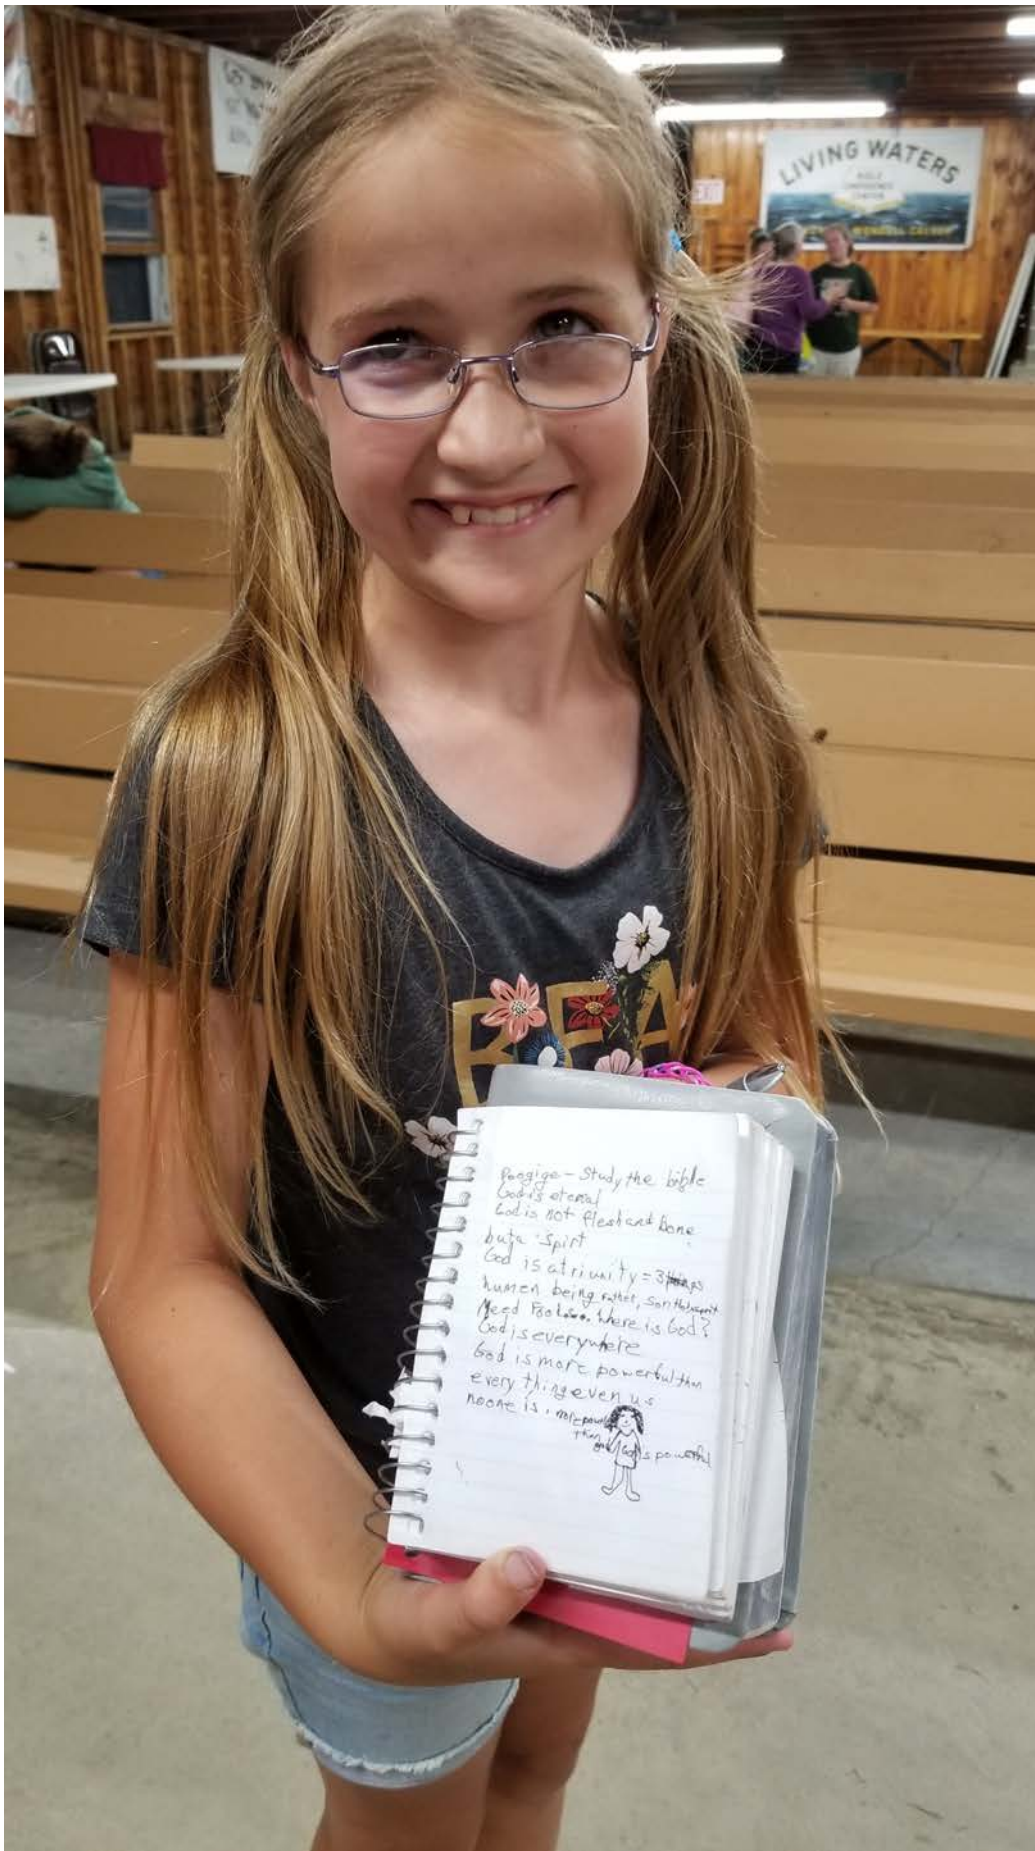 LIVING WATERS
BIBLE
CONFERENCE
CENTER
EXIT
BEA
Study the bible
God is eternal
God is not flesh and bone
but a spirt
God is atriunity = 3 things
humen being Father, Son
Need Where is God?
God is everywhere
God is more powerful than
every thing even us
noone is, more power
than
god God is powerful